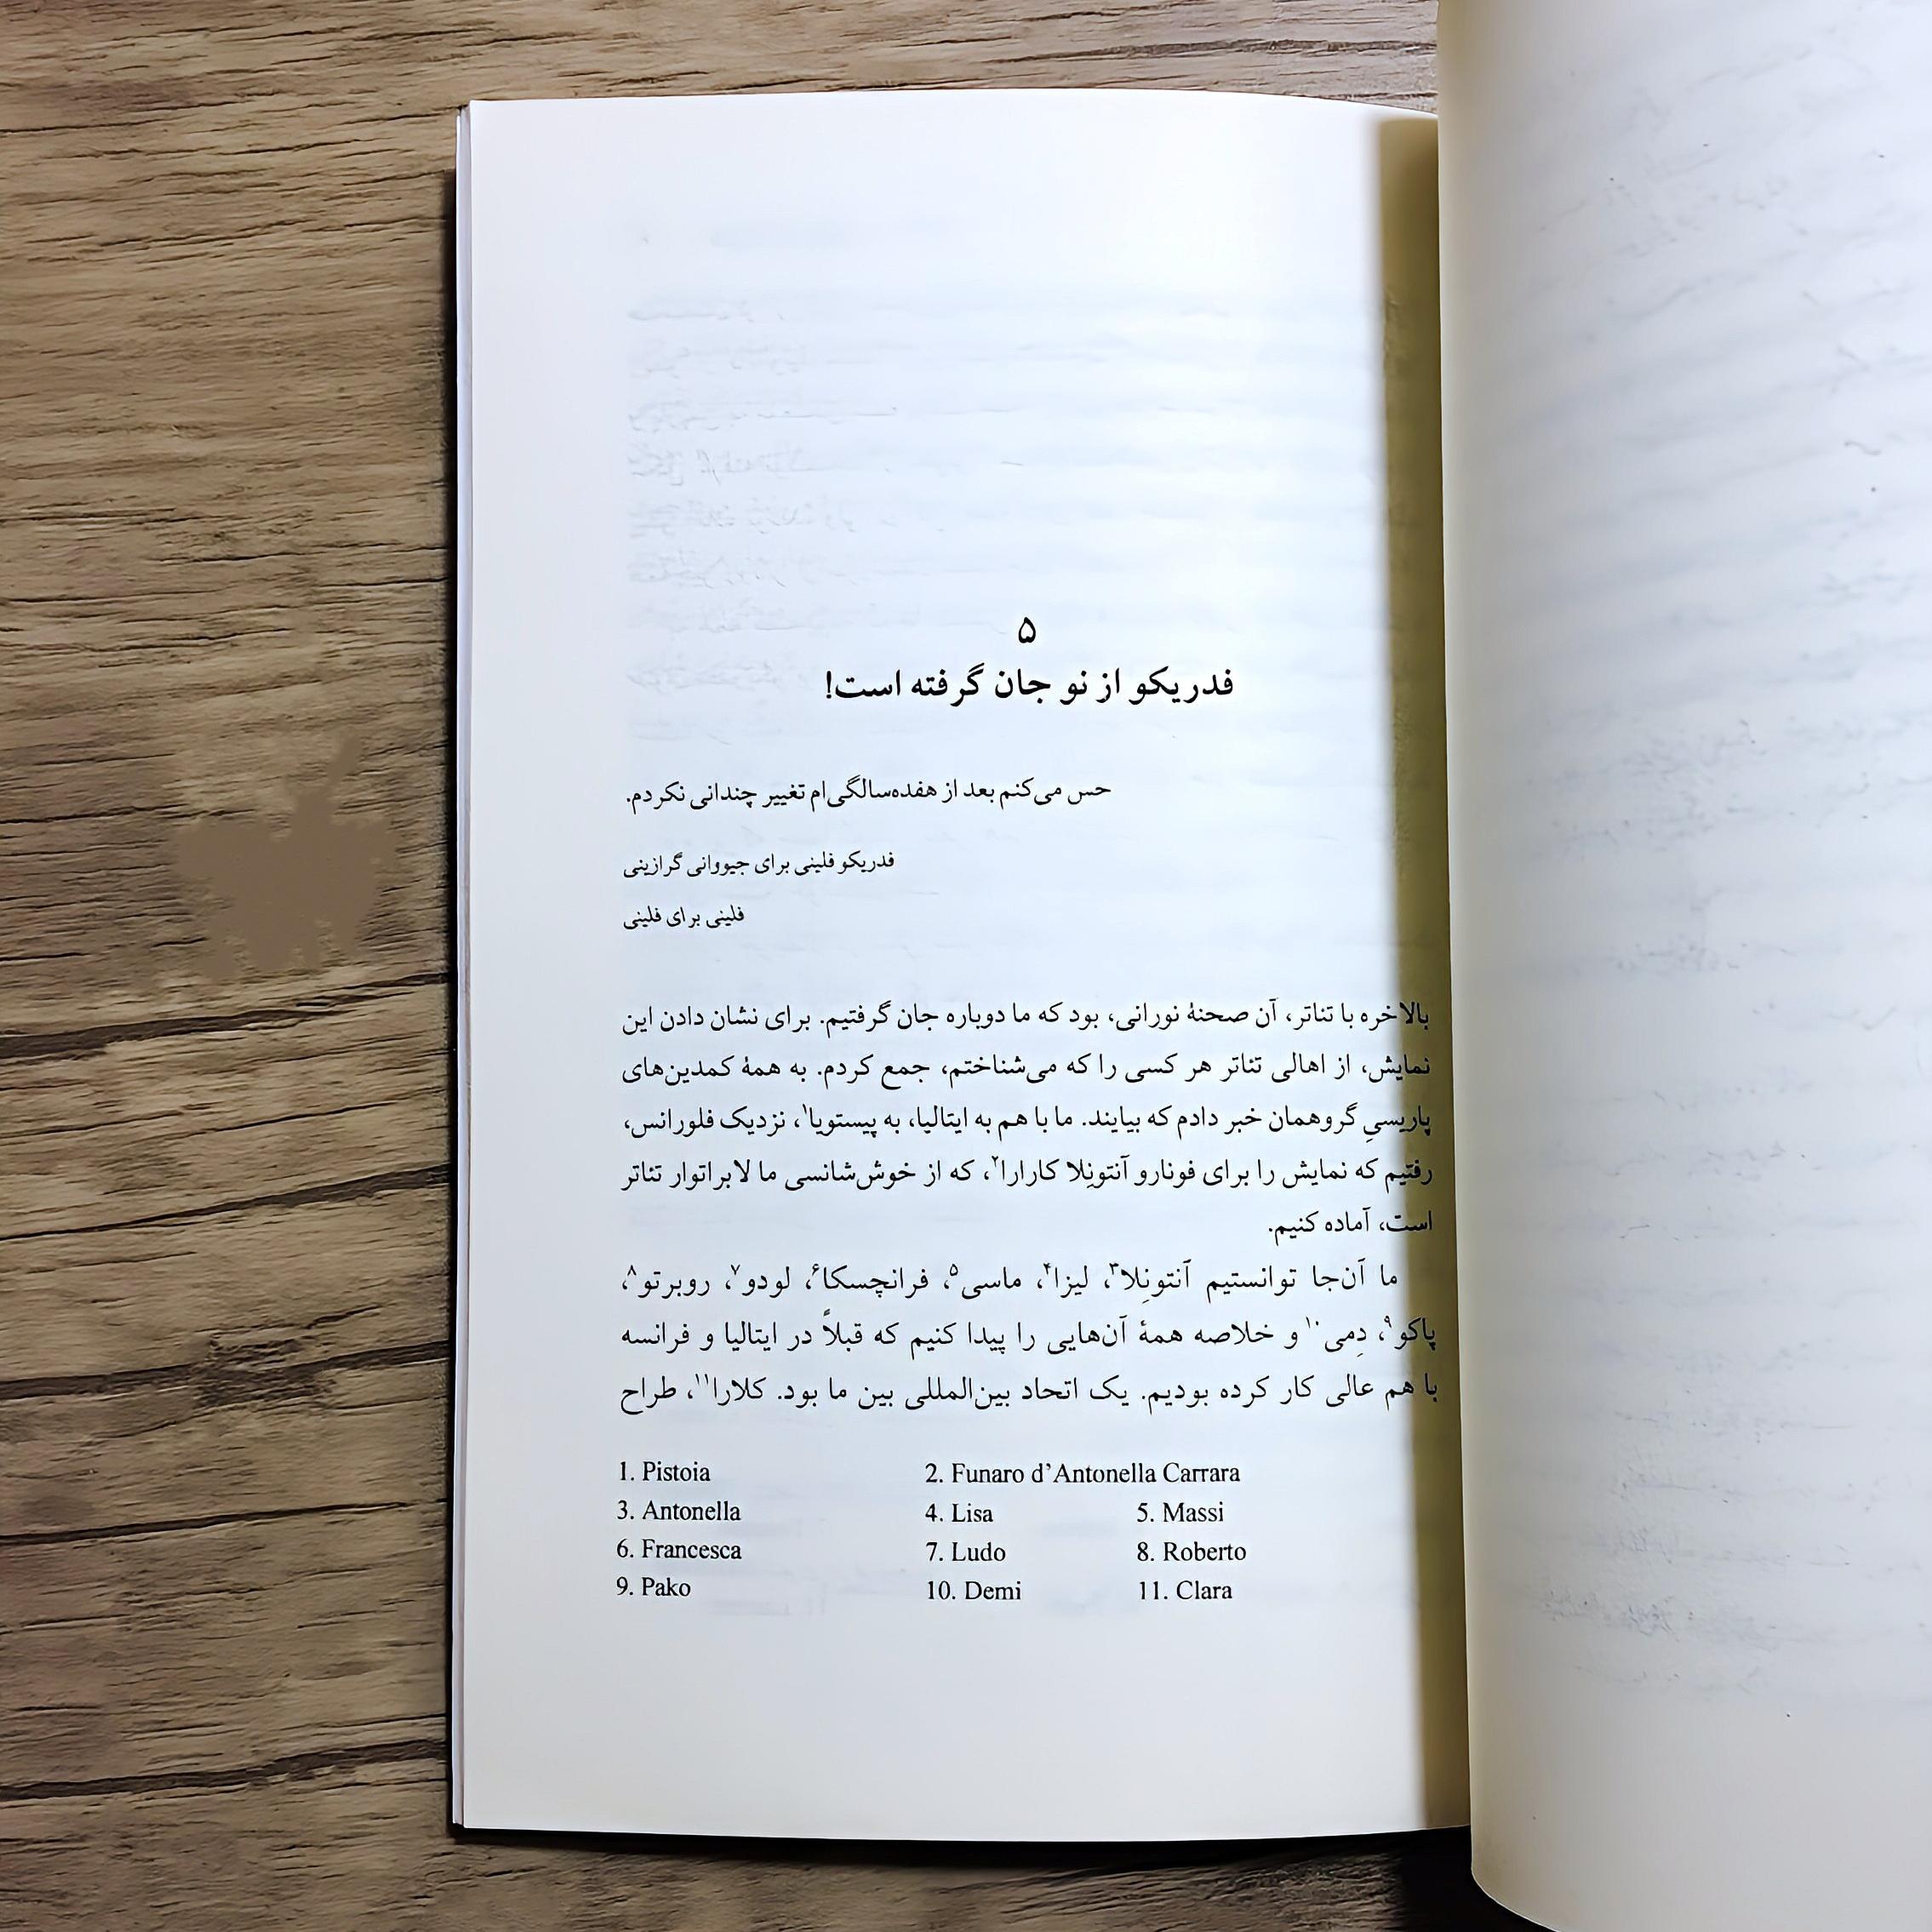 ۵
فدریکو از نو جان گرفته است!
حس می‌کنم بعد از هفده‌سالگی‌ام تغییر چندانی نکردم.
فدریکو فلینی برای جیووانی گرازینی
فلینی برای فلینی
بالاخره با تئاتر، آن صحنهٔ نورانی، بود که ما دوباره جان گرفتیم. برای نشان دادن این
نمایش، از اهالی تئاتر هر کسی را که می‌شناختم، جمع کردم. به همهٔ کمدین‌های
پاریسیِ گروهمان خبر دادم که بیایند. ما با هم به ایتالیا، به پیستویا۱، نزدیک فلورانس،
رفتیم که نمایش را برای فونارو آنتونِلا کارارا۲، که از خوش‌شانسی ما لابراتوار تئاتر
است، آماده کنیم.
ما آن‌جا توانستیم آنتونِلا۳، لیزا۴، ماسی۵، فرانچسکا۶، لودو۷، روبرتو۸،
پاکو۹، دِمی۱۰ و خلاصه همهٔ آن‌هایی را پیدا کنیم که قبلاً در ایتالیا و فرانسه
با هم عالی کار کرده بودیم. یک اتحاد بین‌المللی بین ما بود. کلارا۱۱، طراح
1. Pistoia 2. Funaro d’Antonella Carrara
3. Antonella 4. Lisa 5. Massi
6. Francesca 7. Ludo 8. Roberto
9. Pako 10. Demi 11. Clara